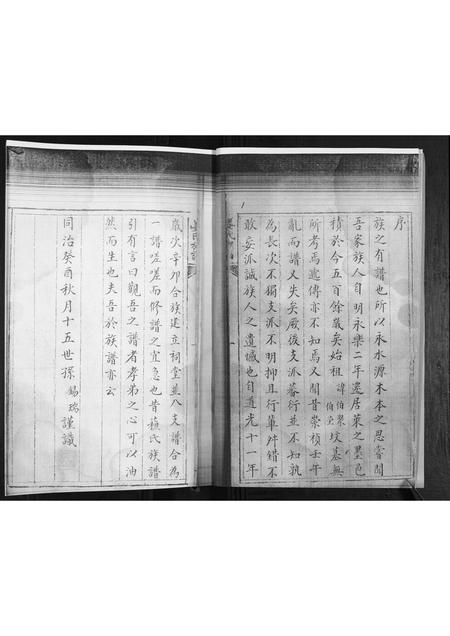 序
族之有譜也所以永水源本本之思嘗聞
吾家族人自明永樂二年遷居萊之墨邑
積於今五百餘歲矣始祖諱伯 伯 坟墓無
所考焉遞傳亦不知焉又聞昔崇禎壬午
亂而譜又失矣厥後支派蕃衍並不知孰
為長次不獨支派不明抑且行輩舛錯不
敢妄派誠族人之遺憾也自道光十一年
歲次辛卯合族建立祠堂並八支譜合為
一譜嗟嗟而修譜之宜急也昔 氏族譜
引有言曰觀吾之譜者孝弟之心可以油
然而生也夫吾於族譜亦云
同治癸酉秋月十五世孫錫瑞謹識